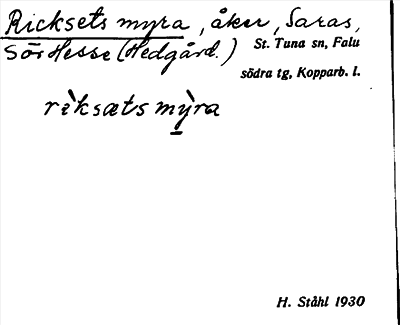 Ricksets myra, åker, Saras,
Sör Hesse (Hedgård.) St. Tuna sn, Falu
södra tg, Kopparb. l.
rὶksætsmỳra
H. Ståhl 1930